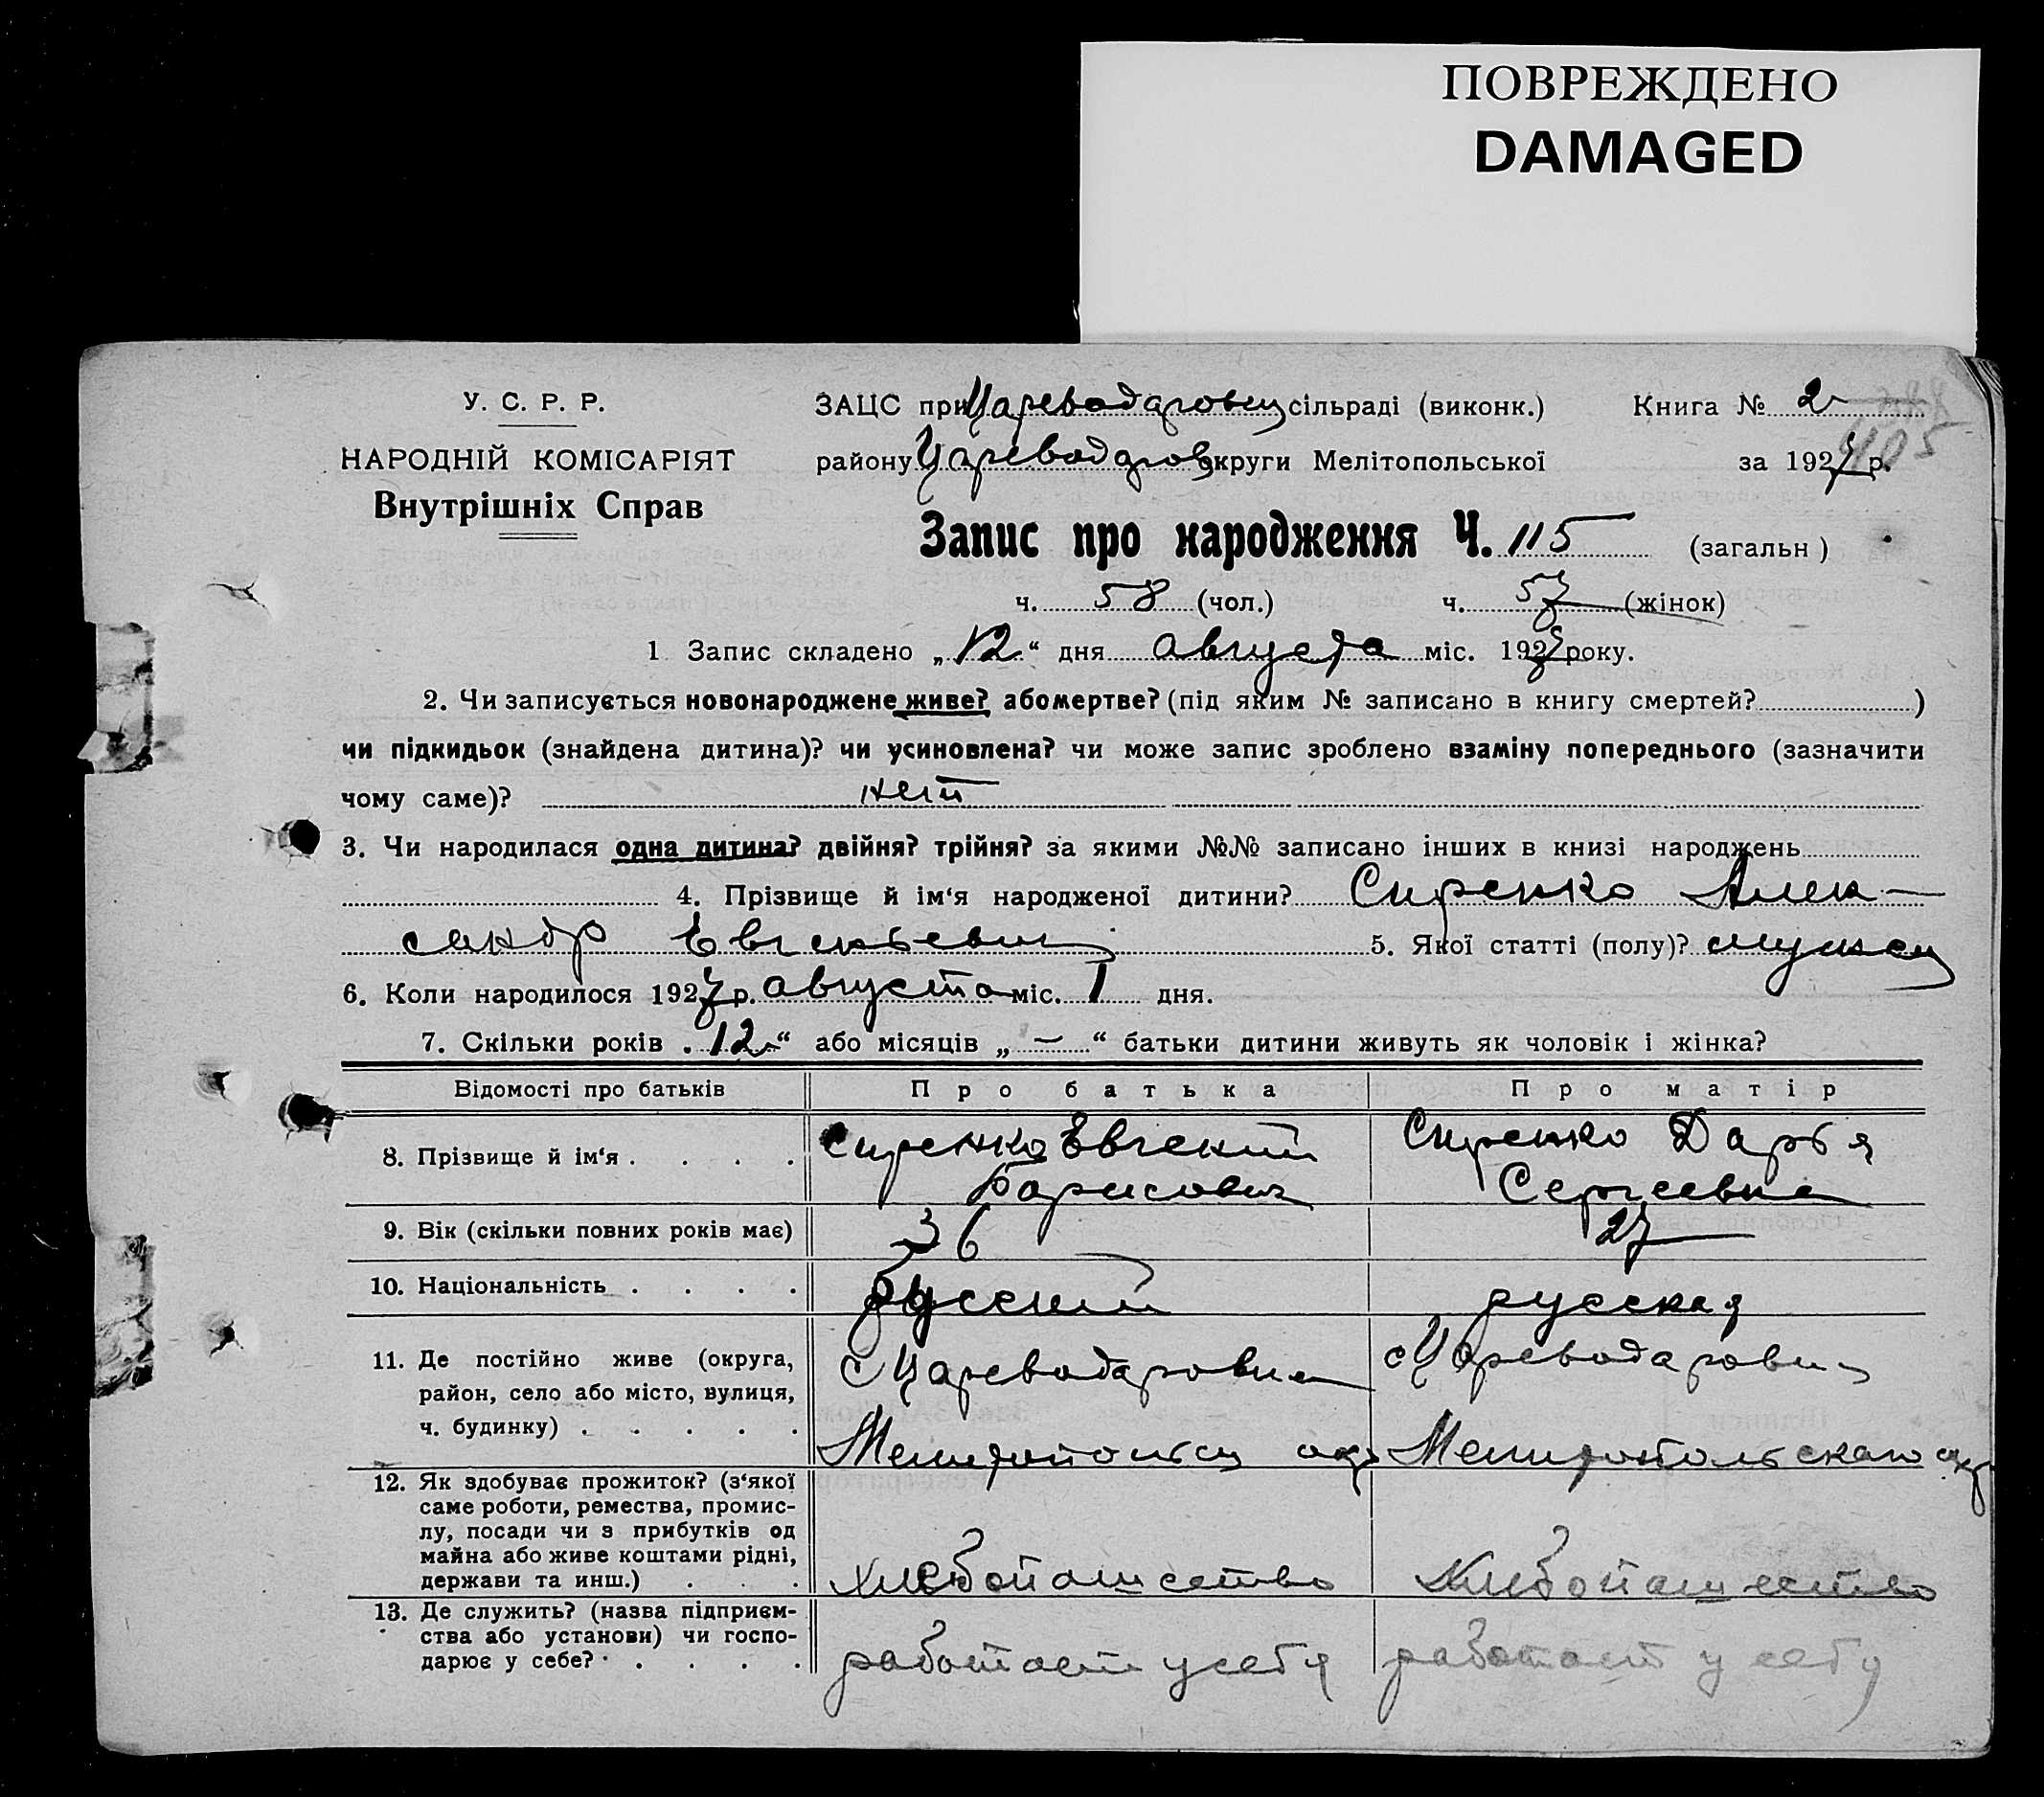 ПОВРЕЖДЕНО
DAMAGED
У. С. Р. Р.
НАРОДНІЙ КОМІСАРІЯТ
Внутрішніх Справ
ЗАЦС при Цареводаровск сільраді (виконк.) Книга № 2
405
району Цареводаров округи Мелітопольської за 1927 р.
Запис про народження Ч. 115 (загальн)
ч. 58 (чол.) ч. 57 (жінок)
1 Запис складено „12“ дня августа міс. 1927 року.
2. Чи записується новонароджене живе? або мертве? (під яким № записано в книгу смертей? )
чи підкидьок (знайдена дитина)? чи усиновлена? чи може запис зроблено взаміну попереднього (зазначити
чому саме)? нет
3. Чи народилася одна дитина? двійня? трійня? за якими №№ записано інших в книзі народжень
4. Прізвище й ім‘я народженої дитини? Сиренко Алек-
сандр Евгеньевич 5. Якої статті (полу)? мужск
6. Коли народилося 1927 р. августа міс. 1 дня.
7. Скільки років „12“ або місяців „—“ батьки дитини живуть як чоловік і жінка?
Відомості про батьків Про батька Про матір
8. Прізвище й ім‘я . . . . Сиренко Евгений Борисович Сиренко Дарья Сергеевна
9. Вік (скільки повних років має) 36 27
10. Національність . . . . русский русская
11. Де постійно живе (округа, район, село або місто, вулиця, ч. будинку) . . . . . с Цареводаровка Мелитопольск окр с Цареводаровк Мелитопольского окр
12. Як здобуває прожиток? (з‘якої саме роботи, ремества, промислу, посади чи з прибутків од майна або живе коштами рідні, держави та инш.) . . . хлебопашество хлебопашество
13. Де служить? (назва підприємства або установи) чи господарює у себе? . . . . работает у себя работает у себя